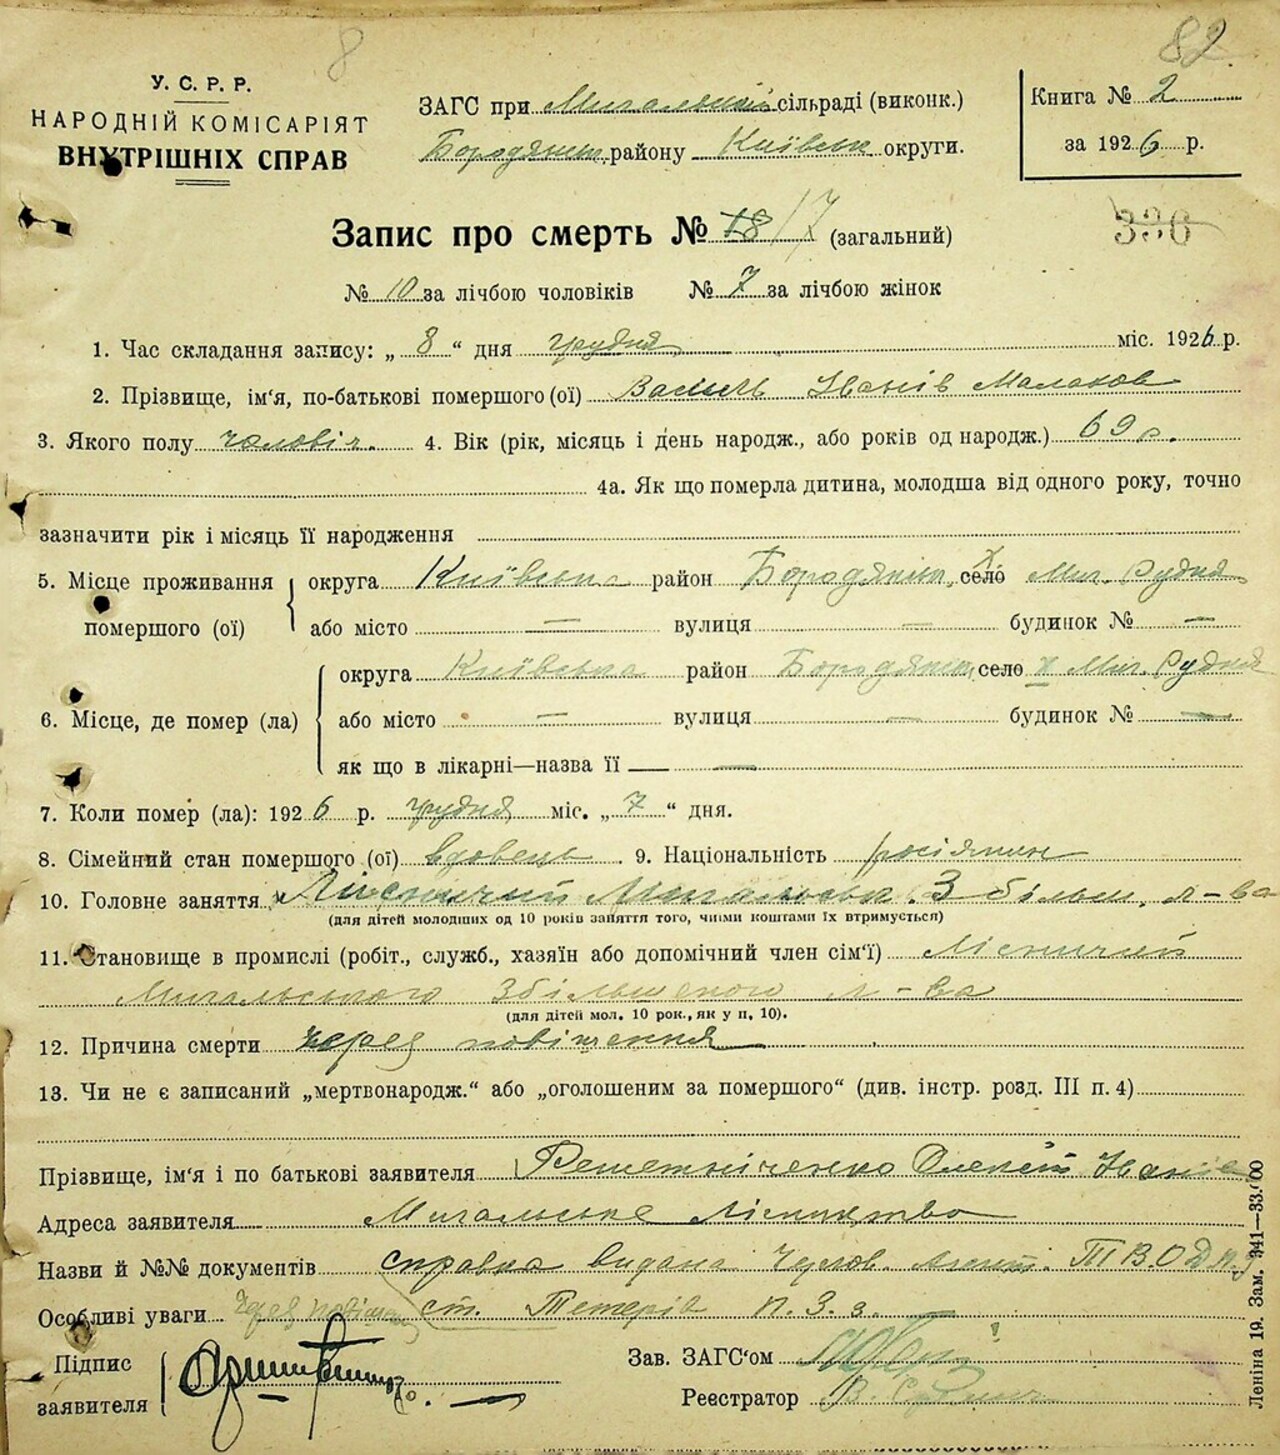 8
82
У. С. Р. Р.
НАРОДНІЙ КОМІСАРІЯТ
ВНУТРІШНІХ СПРАВ
ЗАГС при Мигальській сільраді (виконк.)
Бородянськ. району Київськ округи.
Книга № 2
за 1926 р.
336
Запис про смерть № 18/17 (загальний)
№ 10 за лічбою чоловіків № 7 за лічбою жінок
1. Час складання запису: „ 8 “ дня грудня міс. 1926 р.
2. Прізвище, ім‘я, по-батькові помершого (ої) Василь Іванів Малахов
3. Якого полу чоловіч. 4. Вік (рік, місяць і день народж., або років од народж.) 69 р.
4а. Як що померла дитина, молодша від одного року, точно
зазначити рік і місяць її народження
5. Місце проживання помершого (ої) округа Київська район Бородянськ, село х Миг. Рудня
або місто — вулиця — будинок № —
6. Місце, де помер (ла) округа Київська район Бородянськ, село х Миг. Рудня
або місто — вулиця — будинок № —
як що в лікарні—назва її — —
7. Коли помер (ла): 1926 р. грудня міс. „ 7 “ дня.
8. Сімейний стан помершого (ої) вдовець . 9. Національність росіянин
10. Головне заняття Лісничий Мигальськ. Збільш. л-ва
(для дітей молодших од 10 років заняття того, чиїми коштами їх втримується)
11. Становище в промислі (робіт., служб., хазяїн або допомічний член сім‘ї) Лісничий
Мигальського Збільшеного л-ва
(для дітей мол. 10 рок., як у п. 10).
12. Причина смерти через повішення
13. Чи не є записаний „мертвонародж.“ або „оголошеним за помершого“ (див. інстр. розд. III п. 4)
Прізвище, ім‘я і по батькові заявителя Решетніченко Олексій Іванів
Адреса заявителя Мигальське Лісництво
Назви й №№ документів справка видана Агент. Т В.О
Особливі уваги Через повішен ст. Тетерів П. З. з.
Підпис заявителя
Зав. ЗАГС‘ом
Реєстратор В.
Леніна 19. Зам. 341—33.000